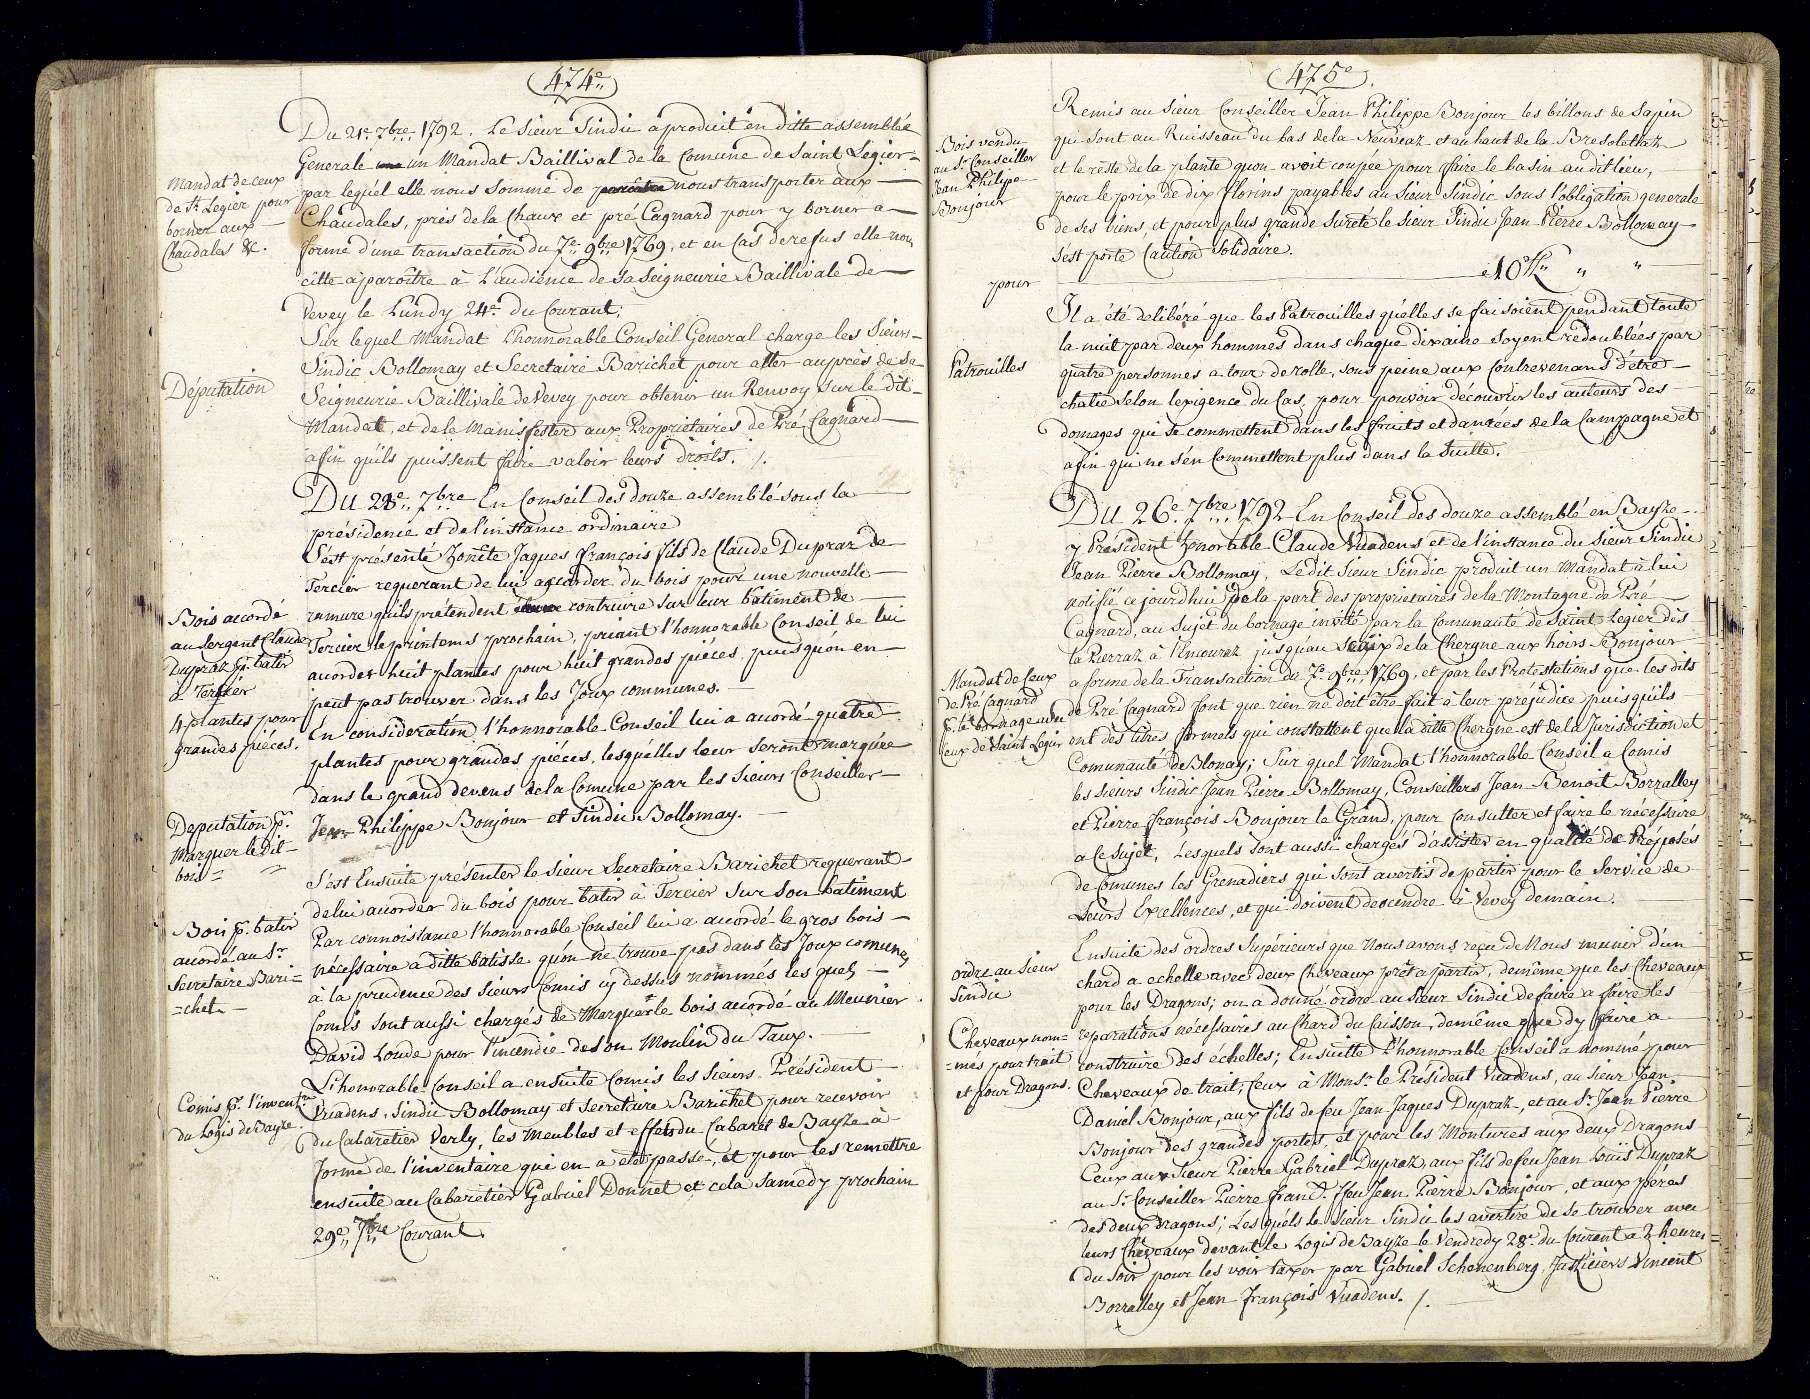 474e
Du 21e 7bre 1792. Le Sieur Sindic a produit en ditte assemblée
Generale un Mandat Baillival de la Comune de Saint Legier
Mandat de ceux
de St Legier pour
borner aux
Chaudales &c.
par lequel elle nous somme de nous transporter aux
Chaudales, près de la Chaux et pré Cagnard pour y borner a
forme d'une transaction du 7e 9bre 1769, et en Cas de refus elle nous
citte a paroître à L'audience de Sa Seigneurie Baillivale de
Vevey le Lundy 24e du Courant.
Sur lequel Mandat l'honnorable Conseil General charge les Sieurs
Députation
Sindic Bollomay et Secretaire Barichet pour aller auprès de Sa
Seigneurie Baillivale de Vevey pour obtenir un Renvoy sur le dit
Mandat, et de le Manisfester aux Propriétaires de Pré Cagnard
afin qu'ils puissent faire valoir leurs droits. /.
Du 28e 7bre En Conseil des douze assemblé sous la
présidence et de l'instance ordinaire
S'est présenté honête Jaques françois fils de Claude Dupraz de
Tercier requerant de lui accorder du bois pour une nouvelle
Bois acordé
au Sergent Claude
Dupraz pr. batir
a Tercier
4 plantes pour
grandes piéces.
ramure qu'ils pretendent contruire sur leur batiment de
Tercier le printems prochain, priant l'honnorable Conseil de lui
acorder huit plantes pour huit grandes piéces puisqu'on en
peut pas trouver dans les Joux communes.
En consideration l'honnorable Conseil lui a acordé quatre
plantes pour grandes piéces, lesquélles leur seront marquée
dans le grand devens de la Comune par les Sieurs Conseiller
Jean Philippe Bonjour et Sindic Bollomay.
Deputation pr.
Marquer le dit
bois
S'est Ensuite présenter le Sieur Secretaire Barichet requerant
de lui acorder du bois pour batir à Tercier sur son batiment
Bois pr. batir
acordé au Sr
Secretaire Bari=
=chet
Par connoissance l'honnorable Conseil lui a acordé le gros bois
nécessaire a ditte batisse qu'on ne trouve pas dans les Joux comunes
à la prudence des Sieurs Comis cy dessus nommés les quels
Comis sont aussi chargés de Marquer le bois acordé au Meunier
David Loude pour l'incendie de son Moulin du Taux.
L'honorable Conseil a ensuite Comis les Sieurs Président
Comis pr. l'inventre
du Logis de Bayze
Vuadens, Sindic Bollomay et Secretaire Barichet pour recevoir
du Cabaretier Verly, les Meubles et effets du Cabaret de Bayze à
forme de l'inventaire qui en a été passé, et pour les remettre
ensuite au Cabaretier Gabriel Donnet et cela Samedy prochain
29e 7bre Courant.
475e
Remis au Sieur Conseiller Jean Philippe Bonjour les billons de Sapin
Bois vendu
au Sr Conseiller
Jean Philipe
Bonjour
qui sont au Ruisseau du bas de la Neuveaz et au haut de la Bresolettaz
et le reste de la plante quon avoit coupée pour faire le basin audit lieu,
pour le prix de dix florins payables au Sieur Sindic sous l'obligation generale
de ses biens, et pour plus grande sureté le Sieur Sindic Jean Pierre Bollomay
s'est porté Caution Solidaire.
pour
10 fl " "
Il a été deliberé que les Patrouilles qu'elles se faisoient pendant toute
la nuit par deux hommes dans chaque dixaine soyent redoublées par
Patrouilles
quatre personnes a tour de rolle, sous peine aux Contrevenans d'être
chatié selon lexigence du Cas, pour pouvoir découvrir les auteurs des
domages qui se commettent dans les fruits et danrées de la Campagne et
afin qui ne s'en Commettent plus dans la Suitte.
Du 26e 7bre 1792 En Conseil des douze assemblé en Bayze
y Président honorable Claude Vuadens et de l'instance du Sieur Sindic
Jean Pierre Bollomay, Le dit Sieur Sindic produit un Mandat à lui
notifié ce jourd'hui de la part des proprietaires de la Montagne de Pré
Cagnard, au sujet du bornage invité par la Comunauté de Saint Legier dès
la Pierraz à l'Encouraz jusqu'au de la Chergne aux hoirs Bonjour
Mandat de Ceux
de Pré Cagnard
pr. le bornage avec
ceux de Saint Legier
a forme de la Transaction du 7e 9bre 1769, et par les Protestations que les dits
de Pré Cagnard font que rien ne doit être fait à leur préjudice puisqu'ils
ont des titres formels qui constattent que la ditte Chergne est de la Jurisdiction et
Comunauté de Blonay; Sur quel Mandat l'honnorable Conseil a Comis
les Sieurs Sindic Jean Pierre Bollomay, Conseillers Jean Benoit Borralley
et Pierre françois Bonjour le Grand, pour Consulter et faire le nécéssaire
a Ce sujet, Lesquels sont aussi chargés d'assister en qualité de Préposés
de Comunes les Grenadiers qui sont avertis de partir pour le service de
Leurs Excellences, et qui doivent descendre à Vevey demain.
Ensuite des ordres supérieurs que Nous avons reçu de Nous munir d'un
ordre au Sieur
Sindic
chard a echelle avec deux Chevaux prêt a partir, demême que les Cheveaux
pour les Dragons; on a donné ordre au Sieur Sindic de faire a faire les
Cheveaux nom=
=més pour trait
et pour Dragons.
reparations nécessaires au Chard du Caisson, demême que dy faire a
construire des échelles; Ensuitte L'honnorable Conseil a nommé pour
Cheveaux de trait, Ceux à Monsr le Président Vuadens, au Sieur Jean
Daniel Bonjour, aux fils de feu Jean Jaques Dupraz, et au Sr Jean Pierre
Bonjour des grandes portes, et pour les Montures aux deux Dragons
Ceux aux Sieur Pierre Gabriel Dupraz, aux fils de feu Jean Louïs Dupraz
au Sr Conseiller Pierre franç. ffeu Jean Pierre Bonjour, et aux péres
des deux Dragons; Les quels le Sieur Sindic les avertira de se trouver avec
leurs Cheveaux devant le Logis de Bayze le Vendredy 28e du Courant a 2 heures
du soir pour les voir taxer par Gabriel Schenenberg, Justiciers Vincent
Borralley et Jean françois Vuadens. /.